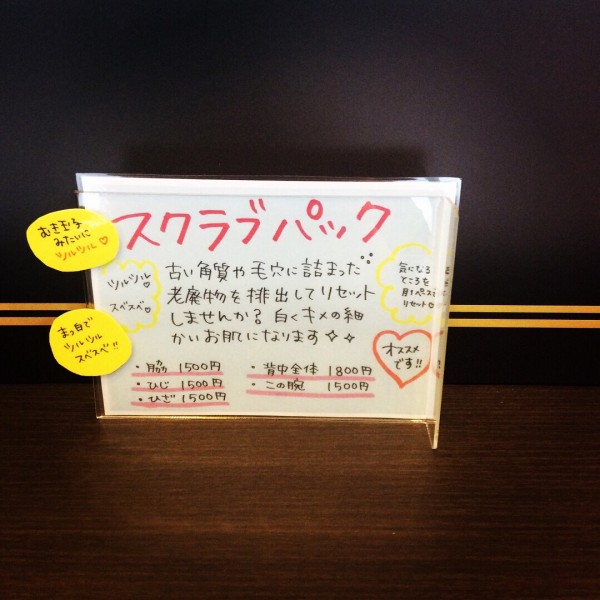 スクラブパック
むき玉子
みたいに
ツルツル♡
ツルツル♡
スベスベ♡
古い角質や毛穴に詰まった
老廃物を排出してリセット
しませんか？白くキメの細
かいお肌になります✧✧
気になる
ところを
月1ペースで
リセット
まっ白で
ツルツル
スベスベ!!
オススメ
です!!
・脇 1500円
・ひじ 1500円
・ひざ 1500円
・背中全体 1800円
・この腕 1500円